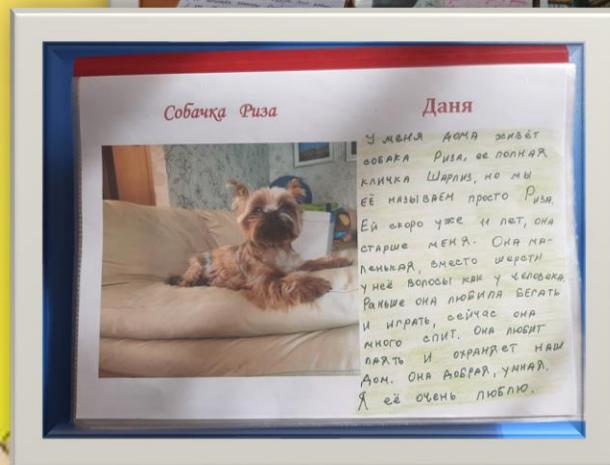 Собачка Риза
Даня
У меня дома живёт
собака Риза, ее полная
кличка Шарлиз, но мы
её называем просто Риза.
Ей скоро уже 11 лет, она
старше меня. Она ма-
ленькая, вместо шерсти
у неё волосы как у человека.
Раньше она любила бегать
и играть, сейчас она
много спит. Она любит
лаять и охраняет наш
дом. Она добрая, умная.
Я её очень люблю.